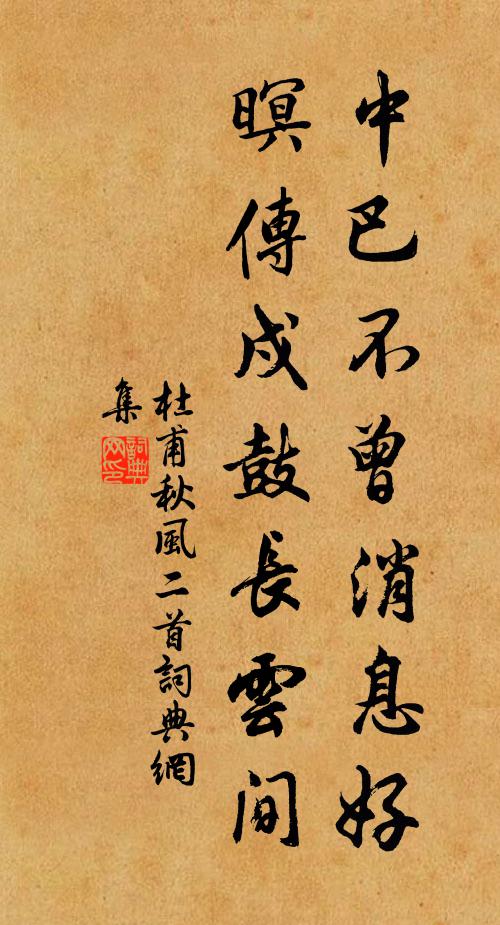 中巴不曾消息好
暝傳戍鼓長雲間
杜甫秋風二首詞典網
集
詞典網印